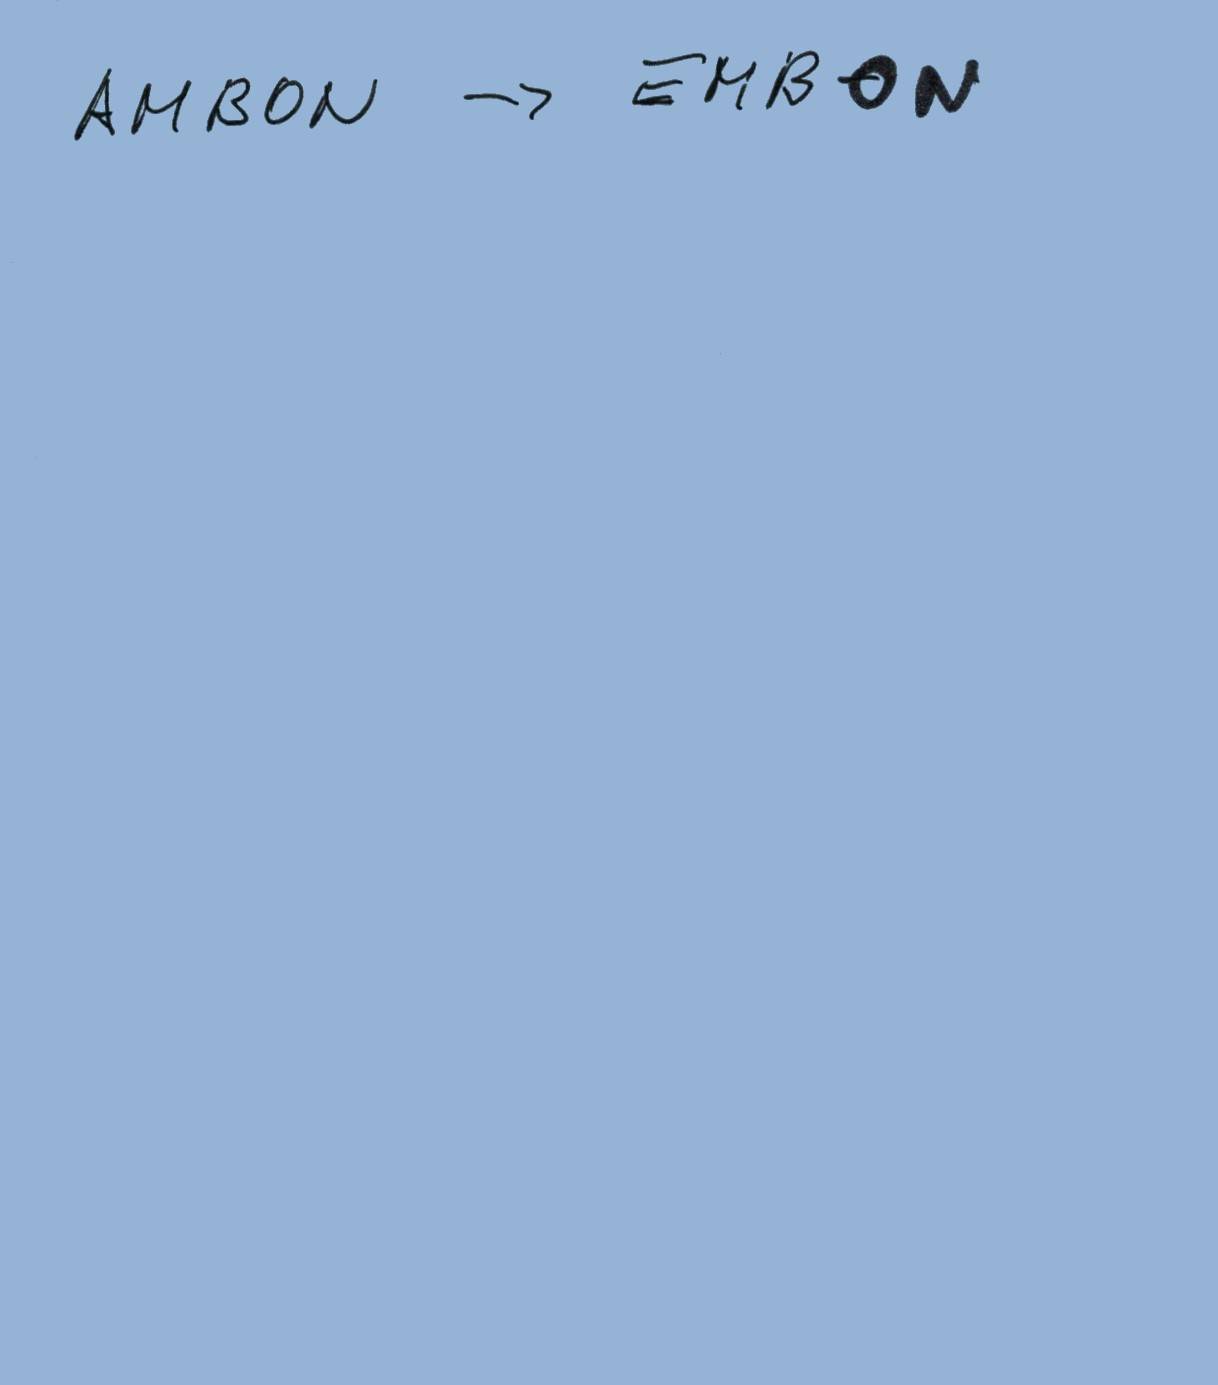 AMBON -> EMBON